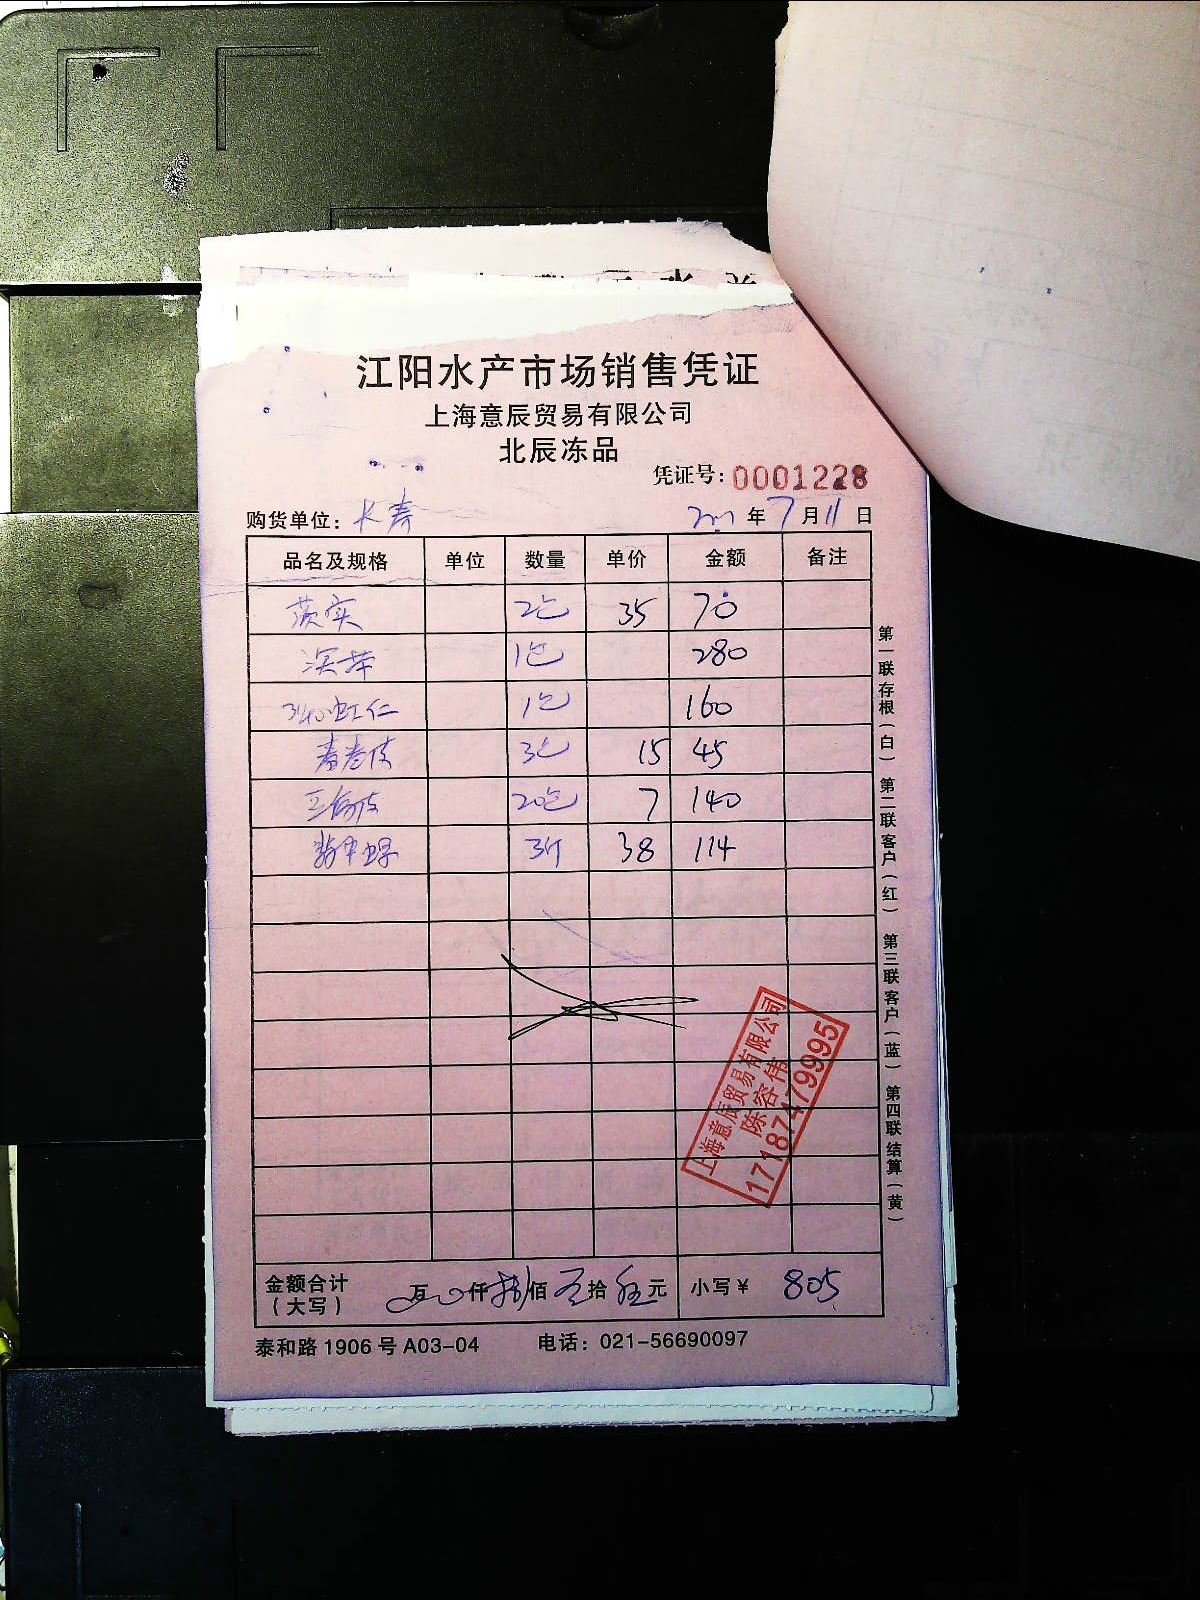 江阳水产市场销售凭证
上海意辰贸易有限公司
北辰冻品
凭证号：0001228
购货单位：长寿 年 7 月 11 日
品名及规格 单位 数量 单价 金额 备注
茨实 2包 35 70
1包 280
虾仁 1包 160
春卷皮 3包 15 45
20包 7 140
3斤 38 114
第一联存根（白） 第二联客户（红） 第三联客户（蓝） 第四联结算（黄）
上海意辰贸易有限公司
陈容伟
17187479995
金额合计（大写） 万 仟 捌 佰 拾 伍 元 小写￥ 805
泰和路1906号A03-04 电话：021-56690097